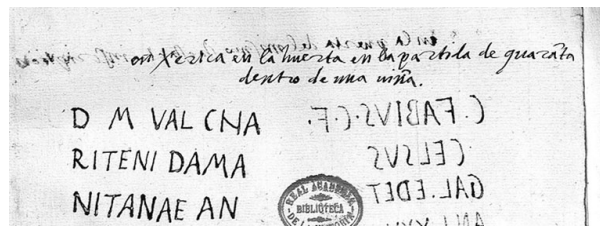 en Xerica en la huerta en la partida de guaranta
dentro de una viña.
D M VAL CNA
RITENI DAMA
NITANAE AN
C. FABIVS. C. F.
CELSVS
GAL EDET
REAL ACADEMIA
BIBLIOTECA
DE LA HISTORIA